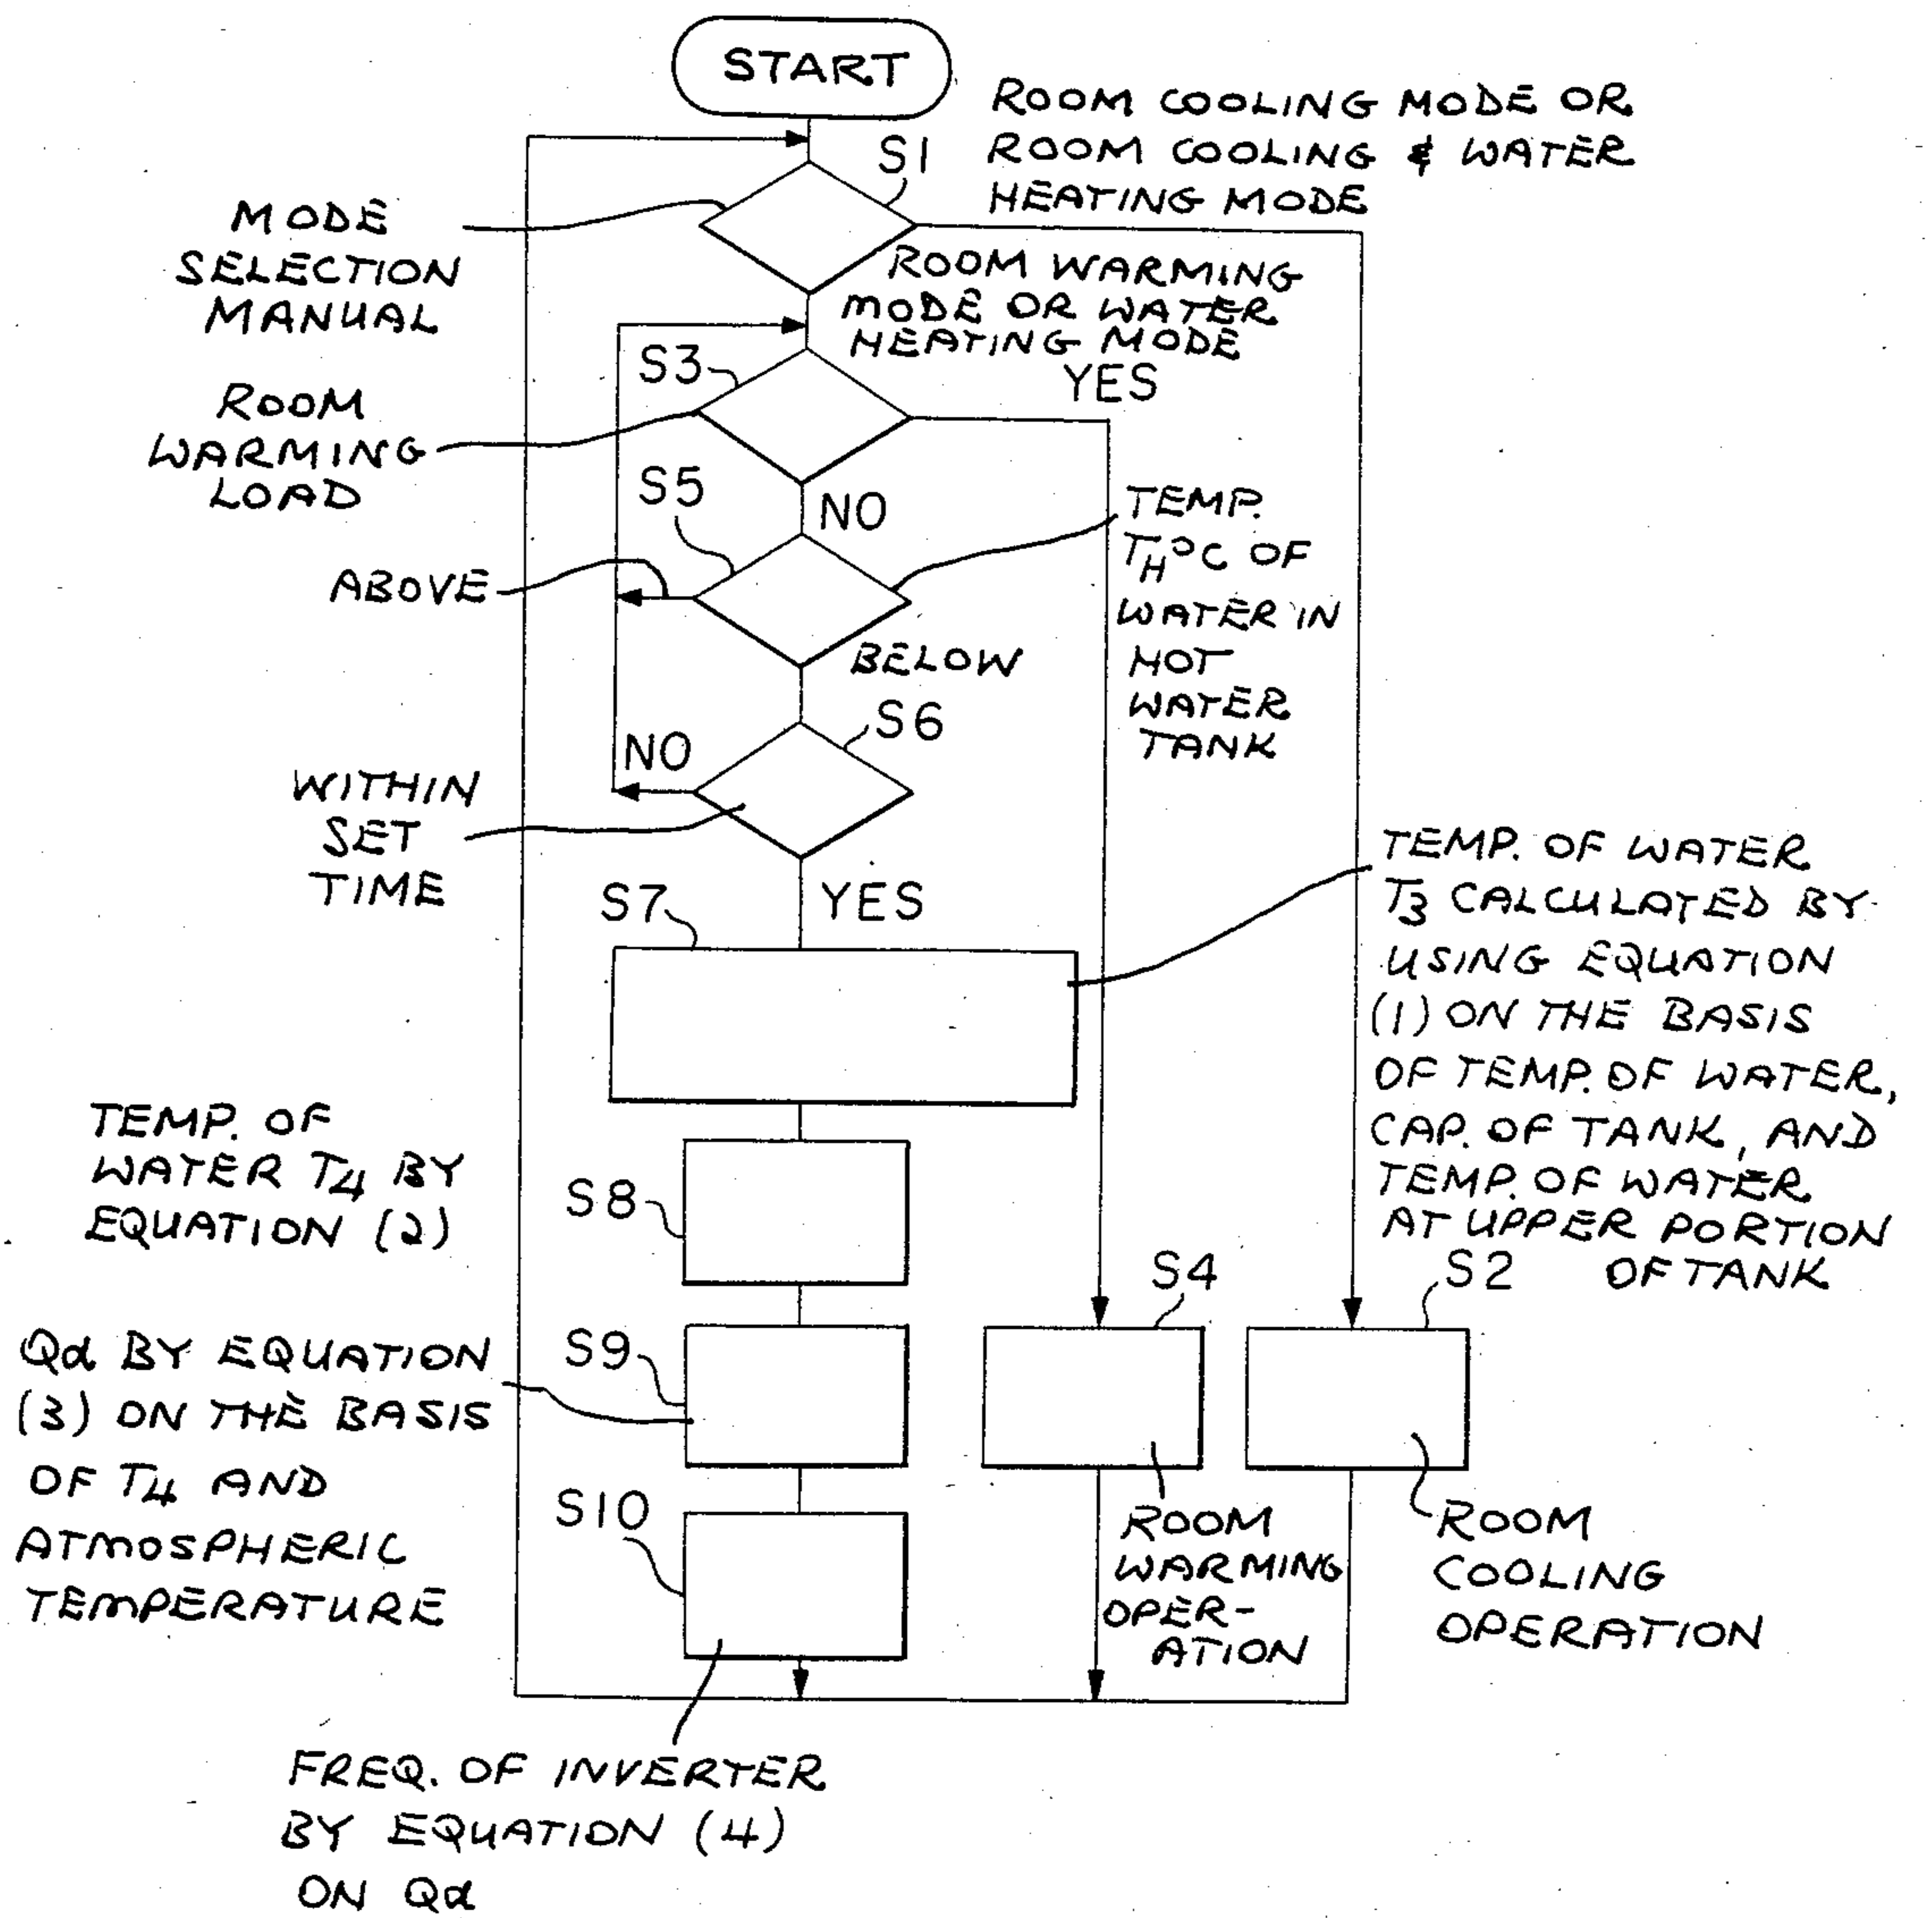 START
ROOM COOLING MODE OR
ROOM COOLING & WATER
HEATING MODE
S1
MODE
SELECTION
MANUAL
ROOM WARMING
MODE OR WATER
HEATING MODE
S3
YES
ROOM
WARMING
LOAD
S5
NO
TEMP.
TH°C OF
WATER IN
HOT
WATER
TANK
ABOVE
BELOW
S6
NO
WITHIN
SET
TIME
YES
S7
TEMP. OF WATER
T3 CALCULATED BY
USING EQUATION
(1) ON THE BASIS
OF TEMP. OF WATER,
CAP. OF TANK, AND
TEMP. OF WATER
AT UPPER PORTION
OF TANK
TEMP. OF
WATER T4 BY
EQUATION (2)
S8
S4
S2
Qd BY EQUATION
(3) ON THE BASIS
OF T4 AND
ATMOSPHERIC
TEMPERATURE
S9
S10
ROOM
WARMING
OPER-
ATION
ROOM
COOLING
OPERATION
FREQ. OF INVERTER
BY EQUATION (4)
ON Qd